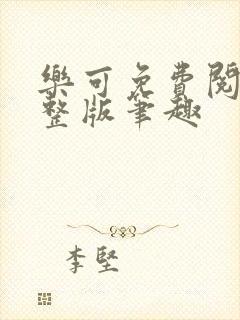 樂可免費閱
整版筆趣
李堅